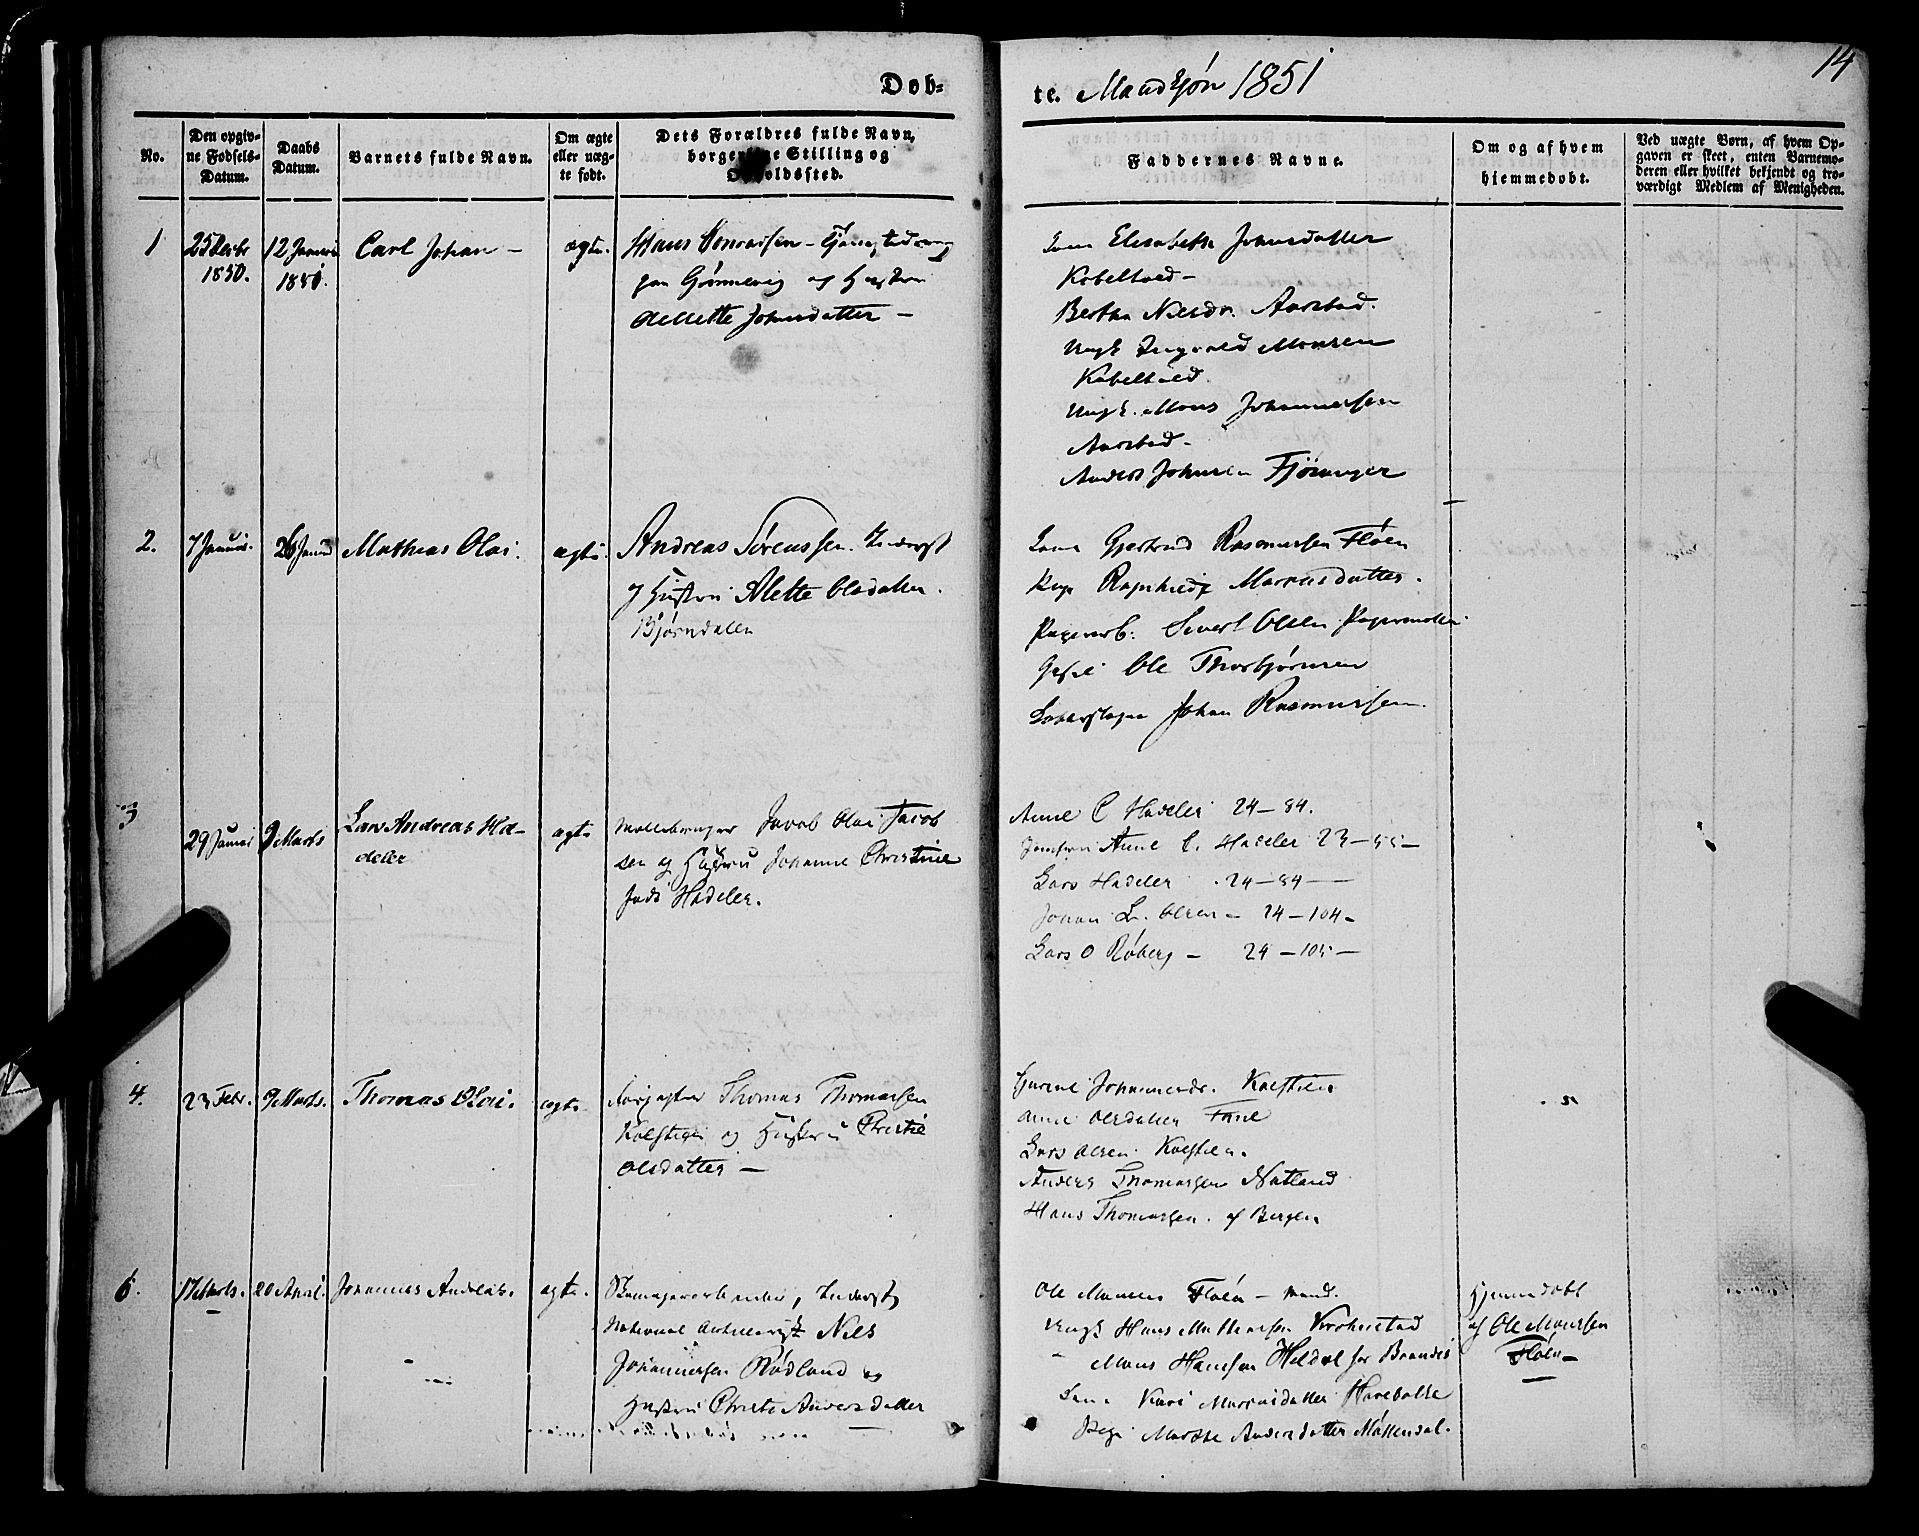 Döb-
te. Mandkjøn 1851
14
No.
Den opgiv-
ne Fødsels-
Datum.
Daabs
Datum.
Barnets fulde Navn.
Om ægte
eller uæg-
te født.
Dets Forældres fulde Navn,
borgerlige Stilling og
Opholdssted.
Faddernes Navne.
Om og af hvem
hjemmedøbt.
Ved uægte Børn, af hvem Op-
gaven er skeet, enten Barnemo-
deren eller hvilket bekjendt og tro-
værdigt Medlem af Menigheden.
1
25 Decbr
1850.
12 Januar
1851.
Carl Johan -
ægte.
Hans
paa Grønnevig og Hustru
Johnsdatter -
Kone Elisabeth Johnsdatter
Kobeltved -
Bertha Nielsdr. Aarstad.
Ungk Ingvald Monsen
Kobeltved.
Ungk. Mons Johannessen
Aarstad -
Anders Johnsen Fjøsanger
2.
7 Januar.
26 Januar
Mathias Olai.
ægte.
Andreas Sørenssen. Inderst
og Hustru Alette Olsdatter.
Bjørndalen
Kone Gjertrud Rasmussen Fløen
Pige Ragnhild Marcusdatter.
Sivert Olsen Papermøllen.
Ole Thorbjørnsen
Johan Rasmussen.
3
29 Januar
9 Marts
Lars Andreas Ha-
deler
ægte
Jacob Olai Jacob
sen og Hustru Johanne Christine
Hadeler.
Anne C Hadeler 24 - 84.
Jomfru Anne C. Hadeler 23 - 55 -
Lars Hadeler . 24 - 84 -
Johan L. Olsen - 24 - 104 -
Lars O Røberg - 24 - 105 -
4.
23 Febr.
9 Marts.
Thomas Olai.
ægte.
Thomas Thomassen
Kalfstien og Hustru Christie
Olsdatter -
Johannesdr. Kalfstien
Anne Olsdatter Fane
Lars Olsen Kalfstien.
Anders Thomassen Natland
Hans Thomassen. af Bergen
5.
17 Marts.
20 April.
Johannes Andreas.
ægte.
Inderst,
National Niels
Johannessen Rødland og
Hustru Christi Andersdatter
Ole Monsen Fløen - mand.
Ungk Hans Mathiassen Kronstad
- Mons Hansen Heldal for Brandis
Kone Kari Marcusdatter Harebakke
Pige Marthe Andersdatter Møllendal.
Hjemmedøbt
af Ole Monssen
Fløen -